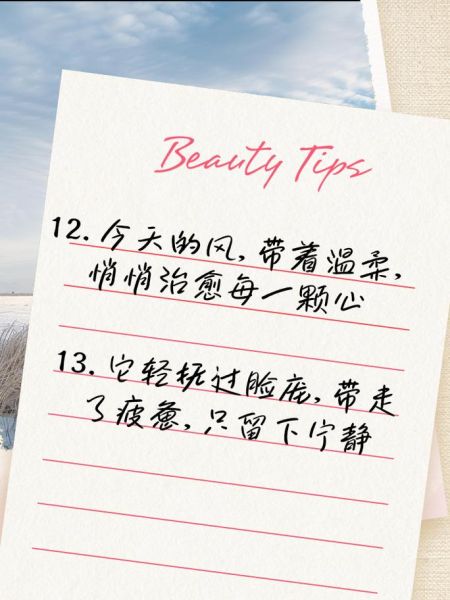 Beauty Tips
12. 今天的风,带着温柔,
悄悄治愈每一颗心
13. 它轻抚过脸庞,带走
了疲惫,只留下宁静